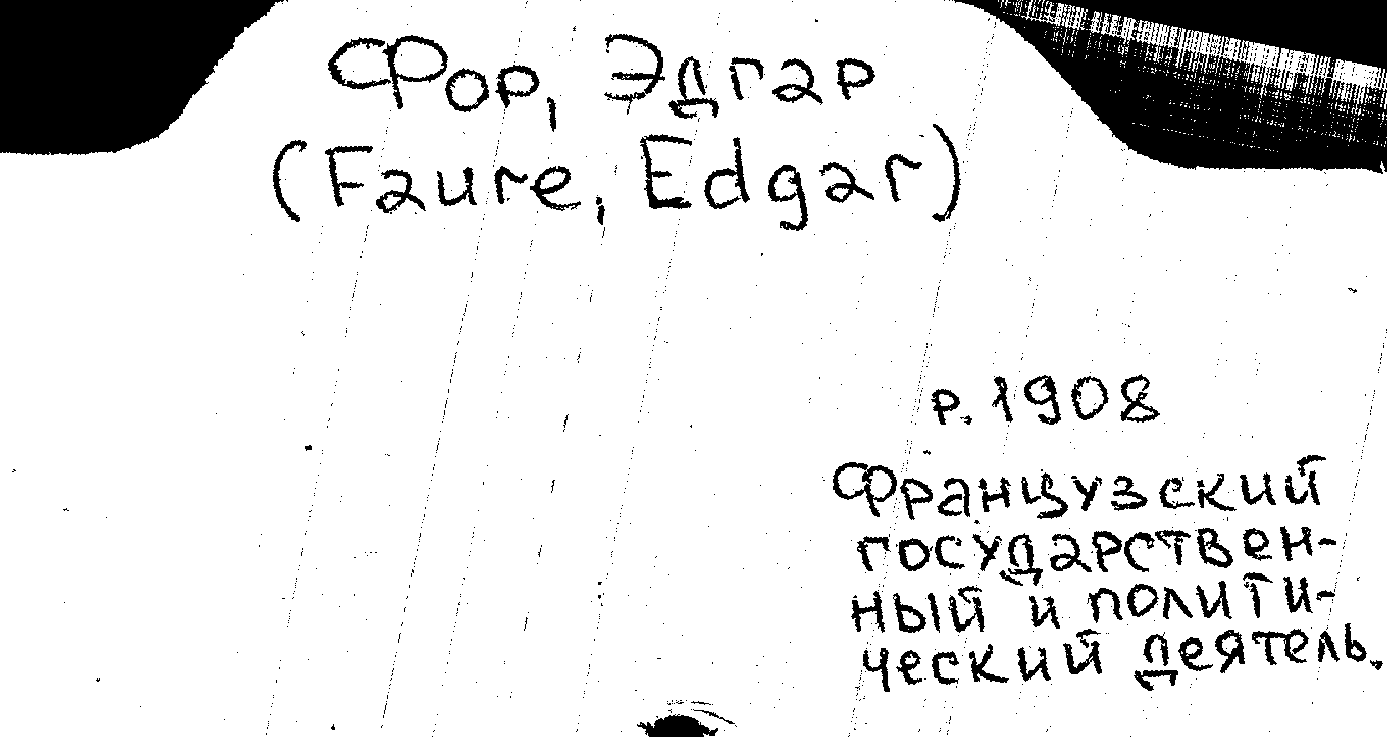 Фор, Эдгар
(Faure, Edgar)
р. 1908
Французский
государствен-
ный и полити-
ческий деятель.